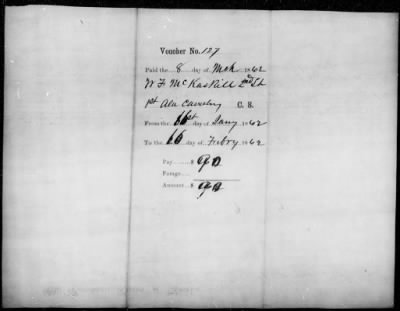 Voucher No. 127
Paid the 8 day of Mch 1862
W F McKaskill 2nd Lt
1st Ala Cavalry C. S.
From the 16st day of Jany 1862
To the 16 day of Febry 1862
Pay $ 90
Forage
Amount $ 90